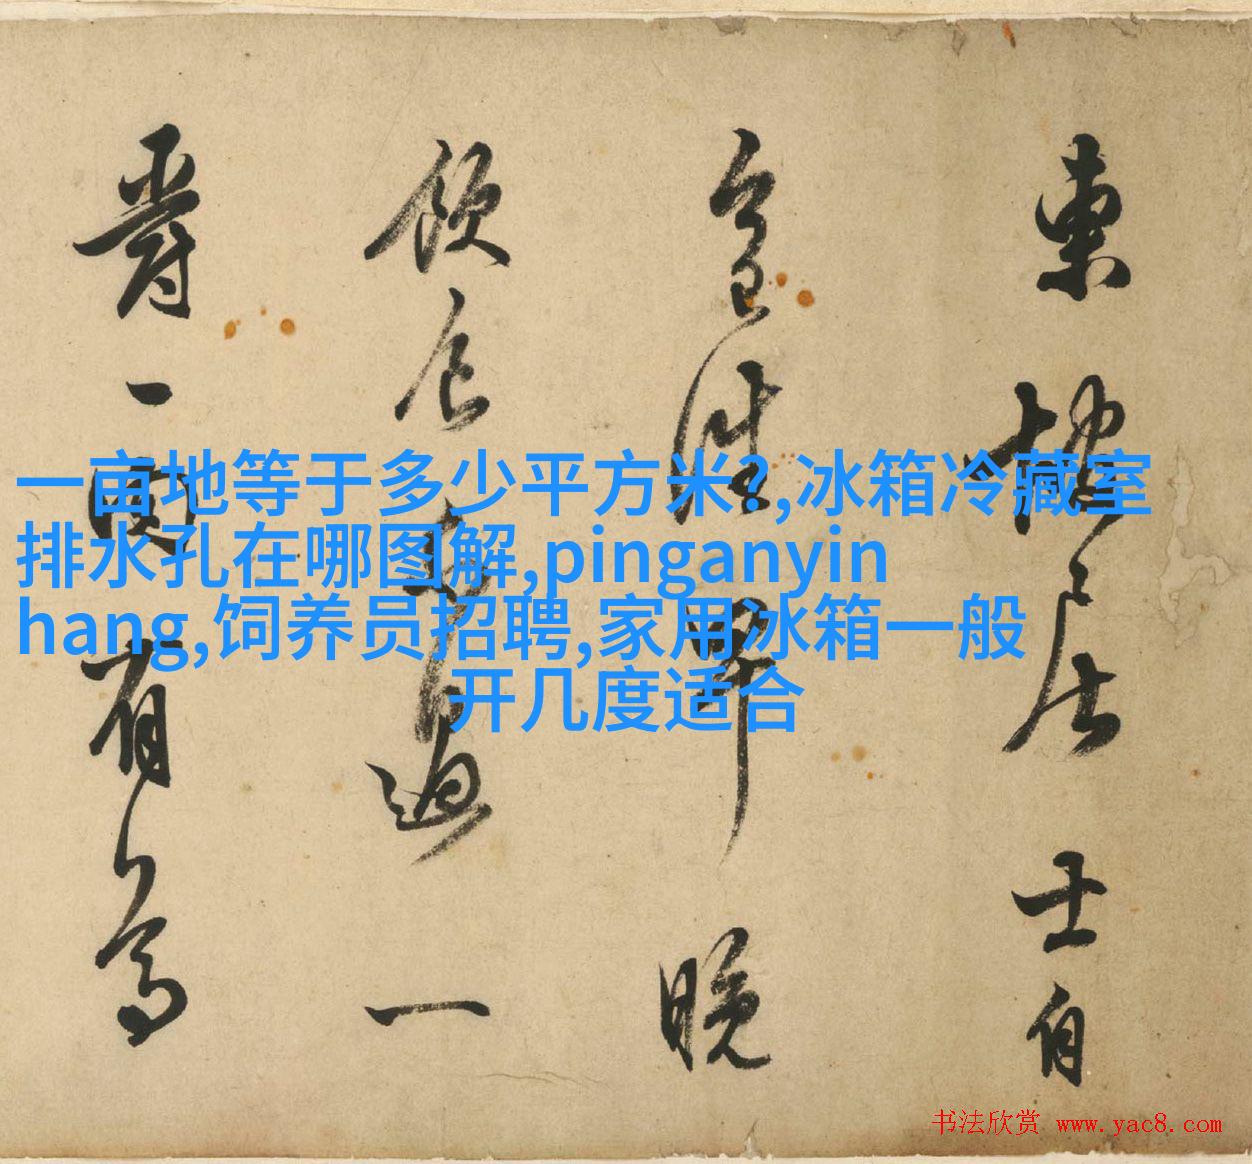 一亩地等于多少平方米?,冰箱冷藏室
排水孔在哪图解,pinganyin
hang,饲养员招聘,家用冰箱一般
开几度适合
東坡居士自
今日往早晚
飲食不過一
爵一肉有尊
书法欣赏 www.yac8.com